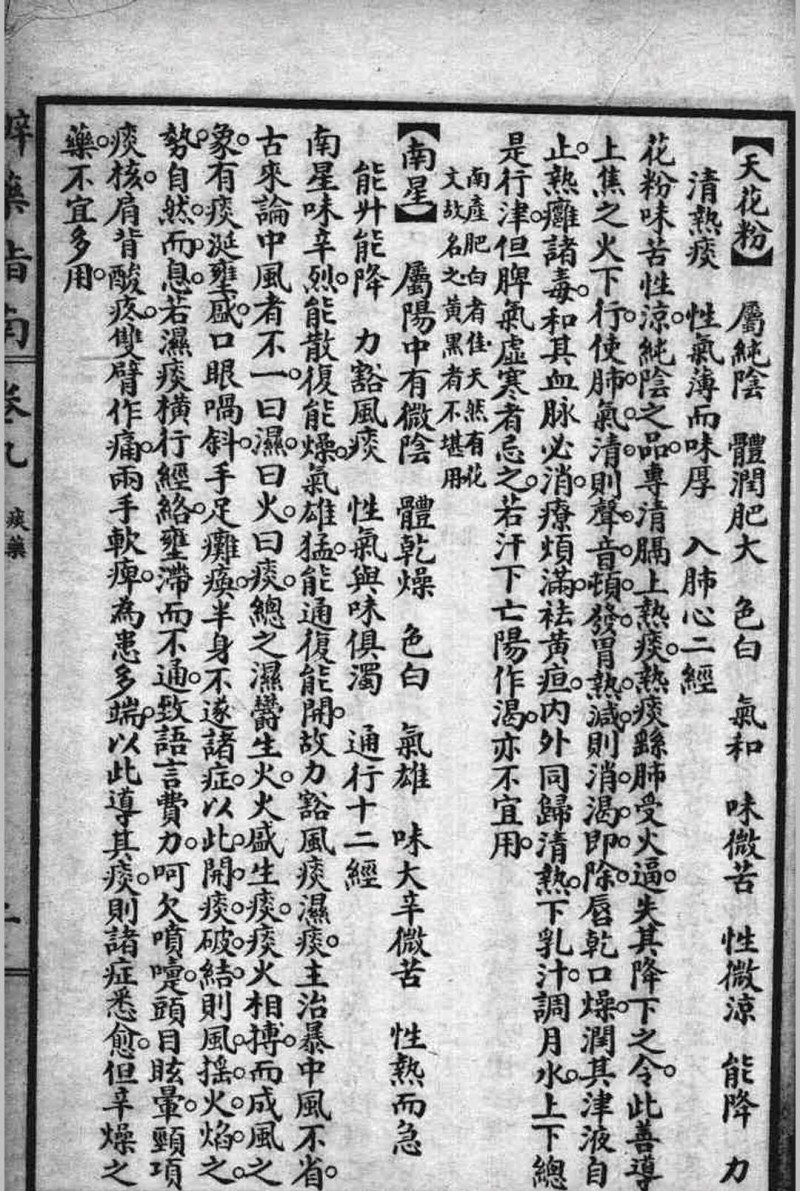 【天花粉】　屬純陰　體潤肥大　色白　氣和　味微苦　性微涼　能降　力
清熱痰　性氣薄而味厚　入肺心二經
花粉味苦性涼。純陰之品。專清膈上熱痰。熱痰繇肺受火逼。失其降下之令。此善導
上焦之火下行。使肺氣清。則聲音頓發。胃熱減。則消渴即除。唇乾口燥。潤其津液自
止。熱癰諸毒。和其血脉必消。療煩滿。祛黃疸。內外同歸清熱。下乳汁。調月水。上下總
是行津。但脾氣虛寒者忌之。若汗下亡陽作渴。亦不宜用。
南產肥白者佳天然有花
文故名之黃黑者不堪用
【南星】　屬陽中有微陰　體乾燥　色白　氣雄　味大辛微苦　性熱而急
能升能降　力豁風痰　性氣與味俱濁　通行十二經
南星味辛烈。能散復能燥。氣雄猛。能通復能開。故力豁風痰濕痰。主治暴中風不省。
古來論中風者不一。曰濕。曰火。曰痰。總之濕鬱生火。火盛生痰。痰火相搏。而成風之
象。有痰涎壅盛。口眼喎斜。手足癱瘓。半身不遂諸症。以此開痰破結。則風搖火焰之
勢。自然而息。若濕痰橫行經絡。壅滯而不通。致語言費力。呵欠噴嚏。頭目眩暈。頸項
痰核。肩背酸疼。雙臂作痛。兩手軟痺。為患多端。以此導其痰。則諸症悉愈。但辛燥之
藥。不宜多用。
藥指南　卷九　痰藥